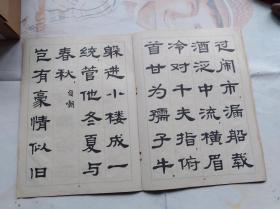 过闹市漏船载
酒泛中流横眉
冷对千夫指俯
首甘为孺子牛
躲进小楼成一
统管他冬夏与
春秋 自嘲
岂有豪情似旧